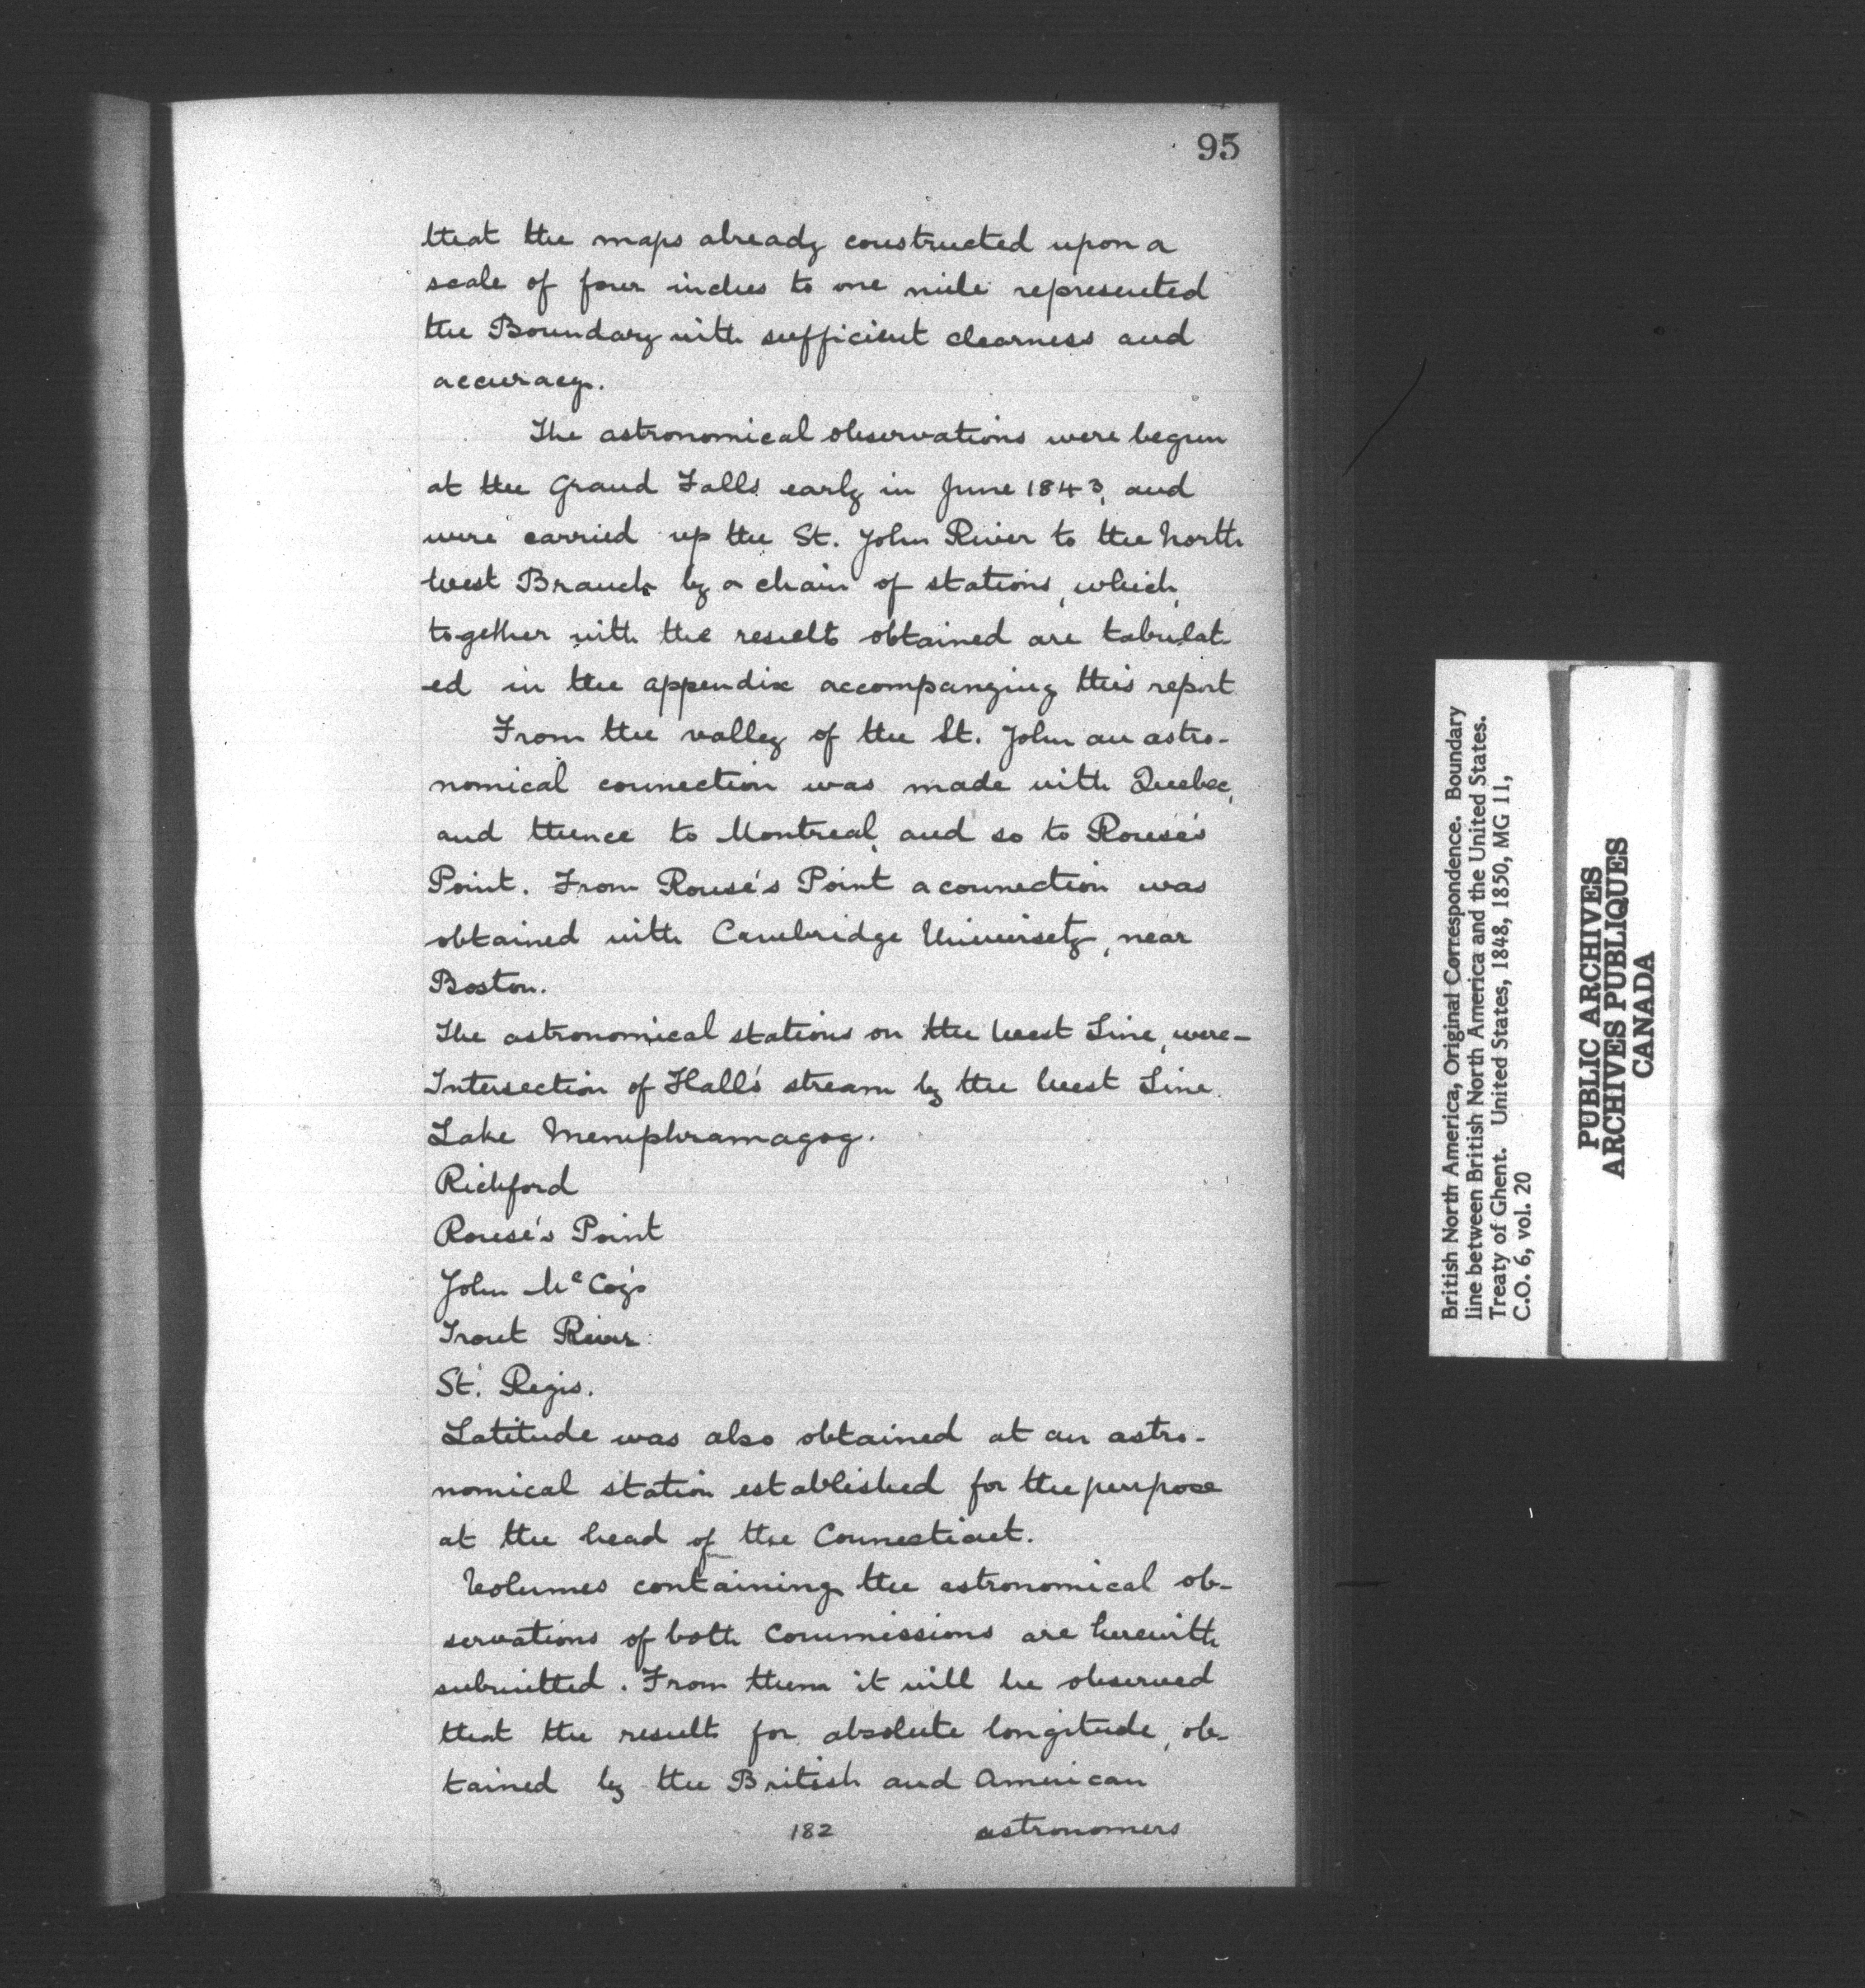 95
that the maps already constructed upon a
scale of four inches to one mile represented
the Boundary with sufficient clearness and
accuracy.
The astronomical observations were begun
at the Grand Falls early in June 1843, and
were carried up the St. John River to the North
West Branch by a chain of stations, which,
together with the results obtained are tabulat-
ed in the appendix accompanying this report
From the valley of the St. John an astro-
nomical connection was made with Quebec,
and thence to Montreal, and so to Rouse's
Point. From Rouse's Point a connection was
obtained with Cambridge University, near
Boston.
The astronomical stations on the West Line, were-
Intersection of Hall's stream by the West Line.
Lake Memphramagog.
Richford
Rouse's Point
John McCoy's
Trout River
St. Regis.
Latitude was also obtained at an astro-
nomical station established for the purpose
at the head of the Connecticut.
Volumes containing the astronomical ob-
servations of both Commissions are herewith
submitted. From them it will be observed
that the results for absolute longitude, ob-
tained by the British and American
182 astronomers
British North America, Original Correspondence. Boundary
line between British North America and the United States.
Treaty of Ghent. United States, 1848, 1850, MG 11,
C.O. 6, vol. 20
PUBLIC ARCHIVES
ARCHIVES PUBLIQUES
CANADA